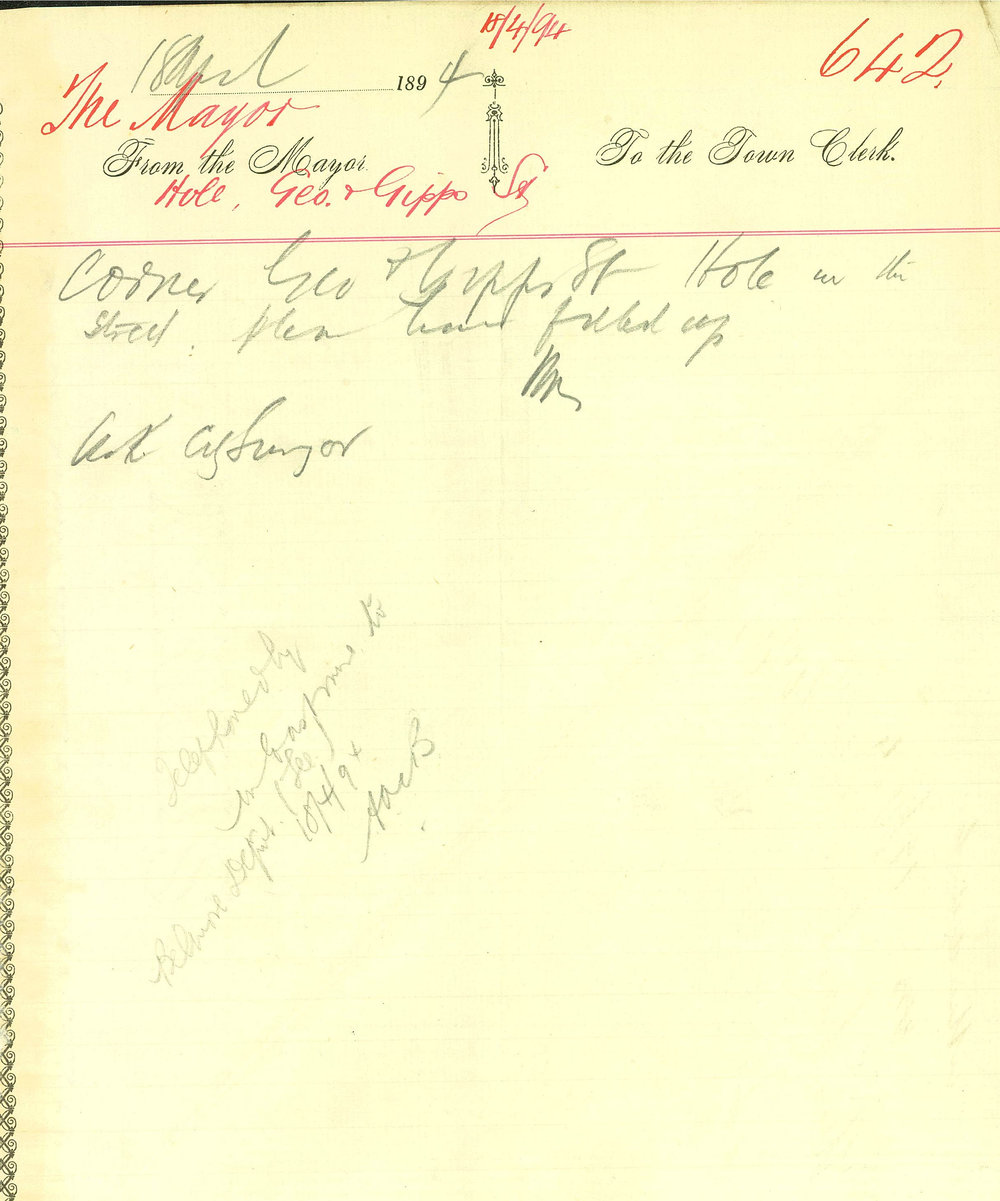 18/4/94
642
18 April 1894
The Mayor
From the Mayor
To the Town Clerk.
Hole, Geo. & Gipps St
Corner Geo & Gipps St Hole in the
street. please have filled up
City Surveyor
Telephoned by
to
Belmore Depot.
18/4/94